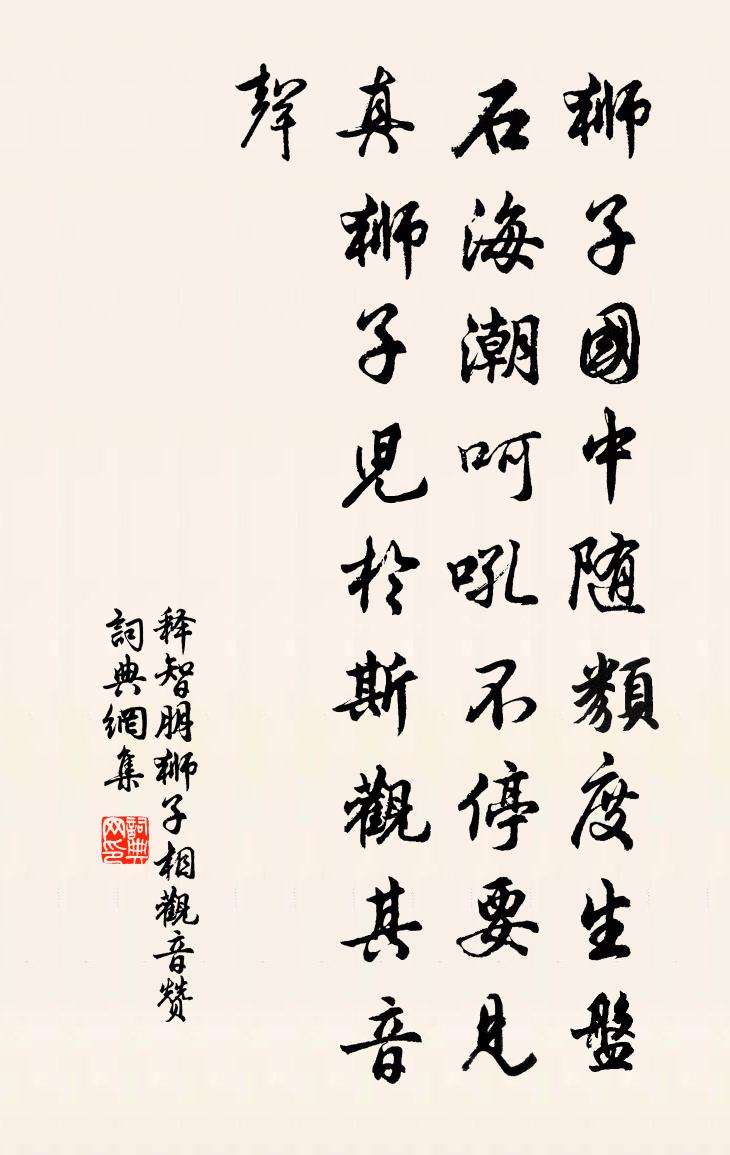 獅子國中随類度生盤
石海潮呵吼不停要見
真獅子兒於斯觀其音
聲
释智朋獅子相觀音赞
詞典網集
詞典
网印